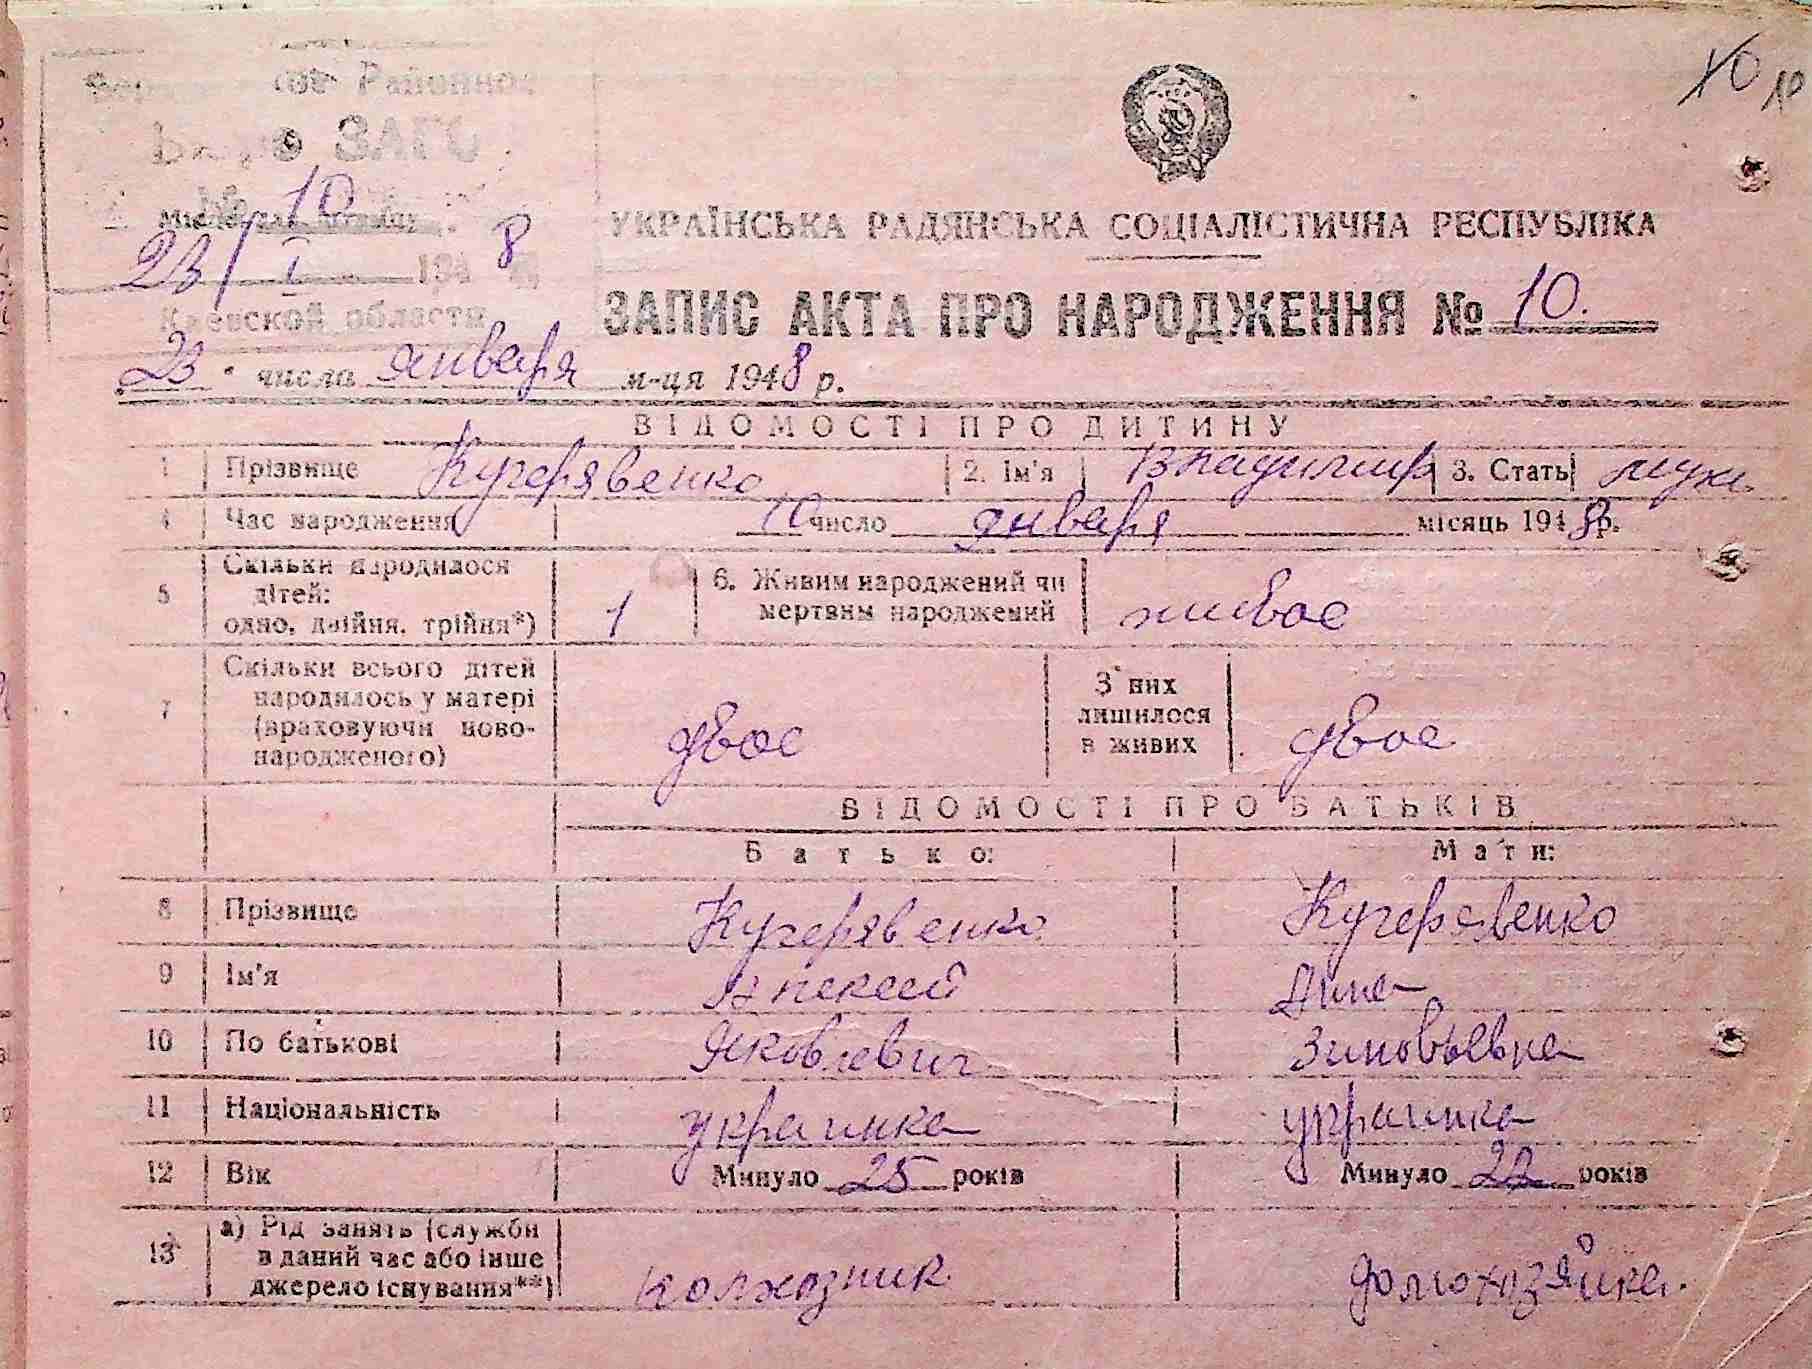 10 10
Районное
Бюро ЗАГС
10
23/I 1948
Киевской области
УКРАЇНСЬКА РАДЯНСЬКА СОЦІАЛІСТИЧНА РЕСПУБЛІКА
ЗАПИС АКТА ПРО НАРОДЖЕННЯ № 10.
23 " числа января м-ця 1948 р.
ВІДОМОСТІ ПРО ДИТИНУ
1 Прізвище Кучерявенко 2. Ім'я Владимир 3. Стать муж.
4 Час народження 10 число января місяць 1948 р.
5 Скільки народилося
дітей:
одно, двійня, трійня*) 1
6. Живим народжений чи
мертвим народжений живое
7 Скільки всього дітей
народилось у матері
(враховуючи ново-
народженого) двое
З них
лишилося
в живих двое
ВІДОМОСТІ ПРО БАТЬКІВ
Батько: Мати:
8 Прізвище Кучерявенко Кучерявенко
9 Ім'я Алексей
10 По батькові Яковлевич Зиновьевна
11 Національність украинка украинка
12 Вік Минуло 25 років Минуло 22 років
13 а) Рід занять (служби
в даний час або інше
джерело існування**) колхозник домохозяйка.